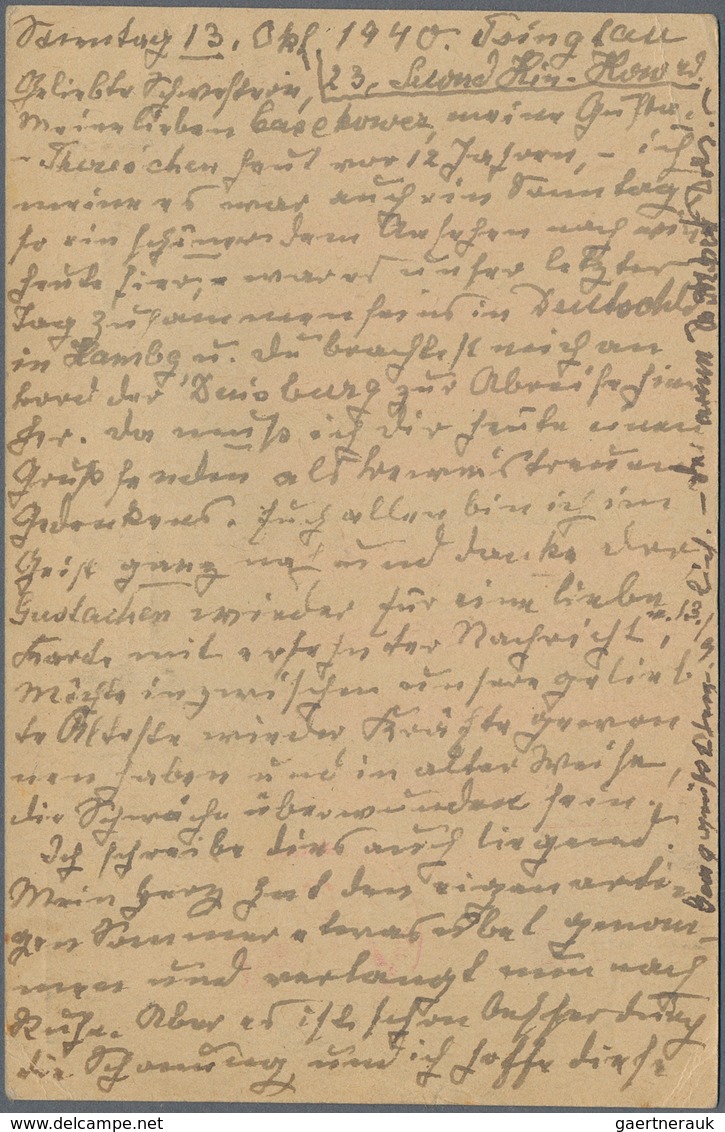 Sonntag 13. Okt. 1940. Tsingtau
23, Second Hin. Road.
Geliebte Schwestern,
Meine lieben meine Gusta,
Thereschen heut vor 12 Jahren, – ich
meine es war auch ein Sonntag
so ein schöner dem Ansehen nach wie
heute hier, – war es unser letzter
Tag zusammenseins in Deutschld
in Hambg u. Du brachtest mich an
bord der "Duisburg" zur Abreise hier
her. Da muß ich dir heute einen
Gruß senden als beweis treuen
Gedenkens. Euch allen bin ich im
Geist ganz nah und danke der
Gustachen wieder für eine liebe
Karte mit ersehnter Nachricht, v. 13/9.
Möchte inzwischen unsere gelieb
te Älteste wieder Kräfte gewon
nen haben und in alter Weise,
die Schwäche überwunden sein.
Ich schreibe dies auch liegend.
Mein Herz hat den eigenarti-
gen Sommer etwas übel genom-
men und verlangt nun nach
Ruhe. Aber es ist schon Besserung
die Schonung, und ich hoffe diese